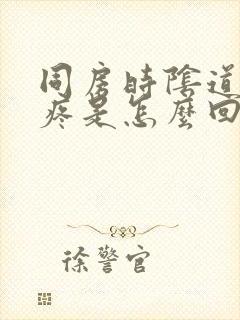 同房時陰道
疼是怎麼回
徐警官